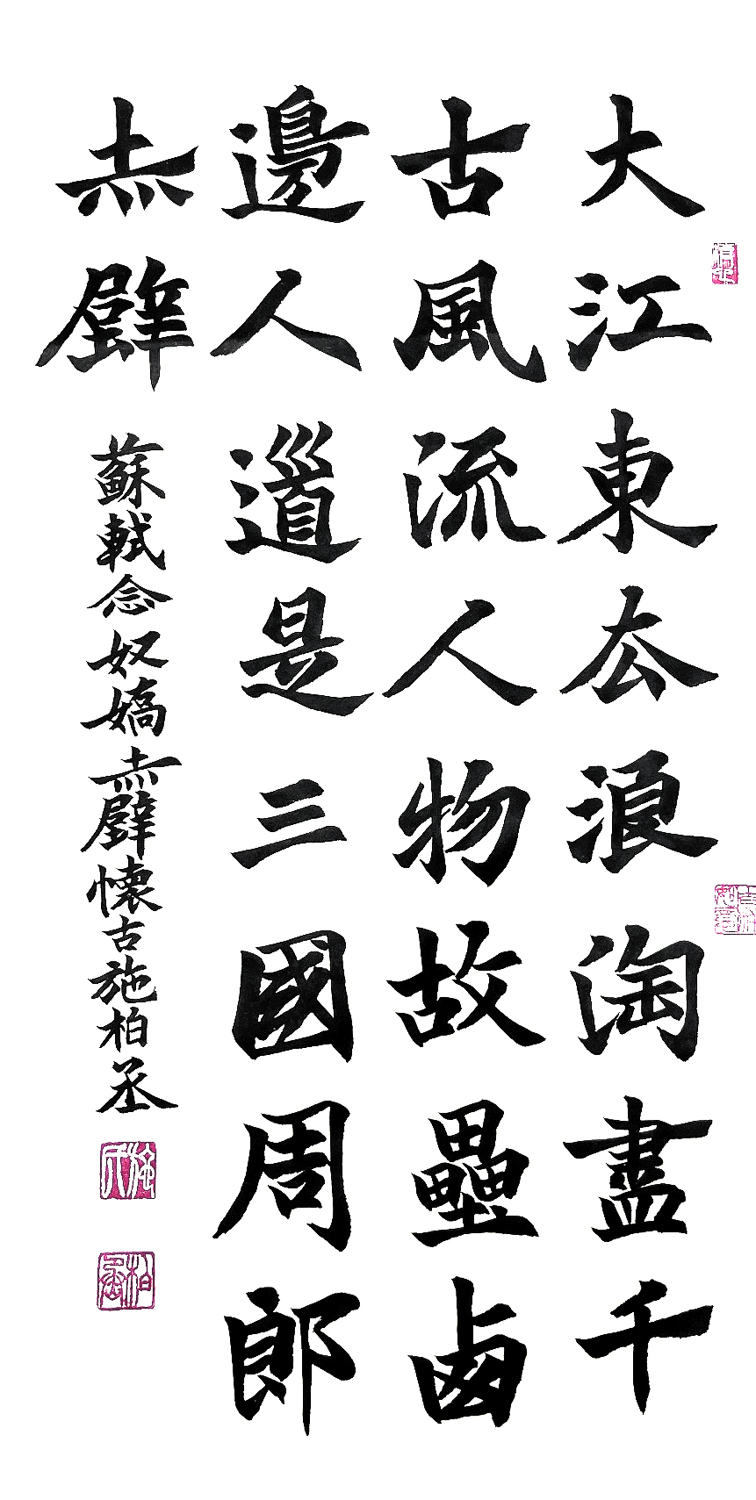 大江東厺浪淘盡千
古風流人物故壘卥
邊人道是三國周郎
赤壁
蘇軾念奴嬌赤壁懷古施柏丞